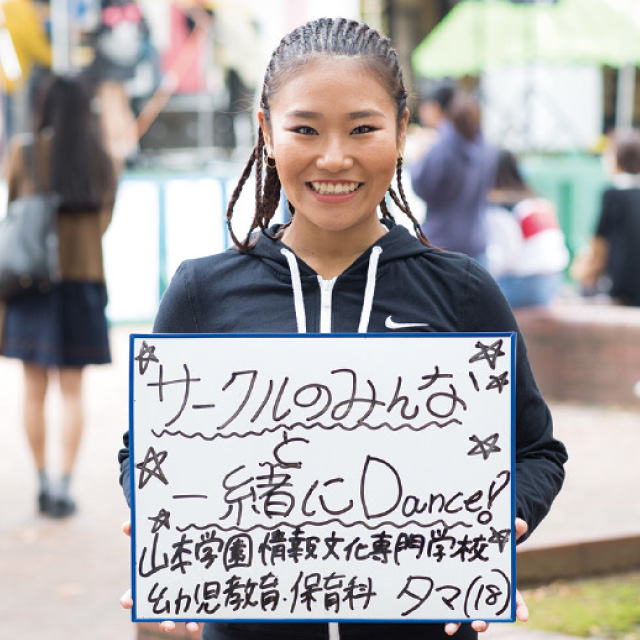 サークルのみんな
と
一緒にDance!
山本学園情報文化専門学校
幼児教育・保育科 タマ(18)